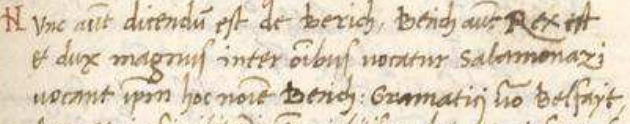 Nunc aūt dicendū est de Berich, Berich aūt Rex est
et dux magnus inter oībus vocatur Salamonazi
vocant ipm̄ hoc noīe Berich: Gramatici ūo Belfayt,